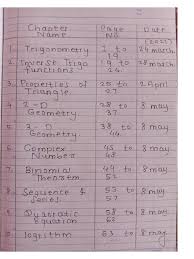 Chapter Name Page No Date (2021)
1. Trigonometry 1 to 19 24 march
2. Inverse Trigo functions 19 to 24 28 march
3. Properties of Triangle. 25 to 27 2 April
4 2-D Geometry 28 to 37 8 may
5 3-D Geometry 38 to 44 8 may
6 Complex Number 45 to 48 8 may
7. Binomial Theorem 49 to 52 8 may
8 Sequence & series 53 to 57 8 may
9. Quadratic Equation 58 to 62 8 may
logrithm 63 to 8 may